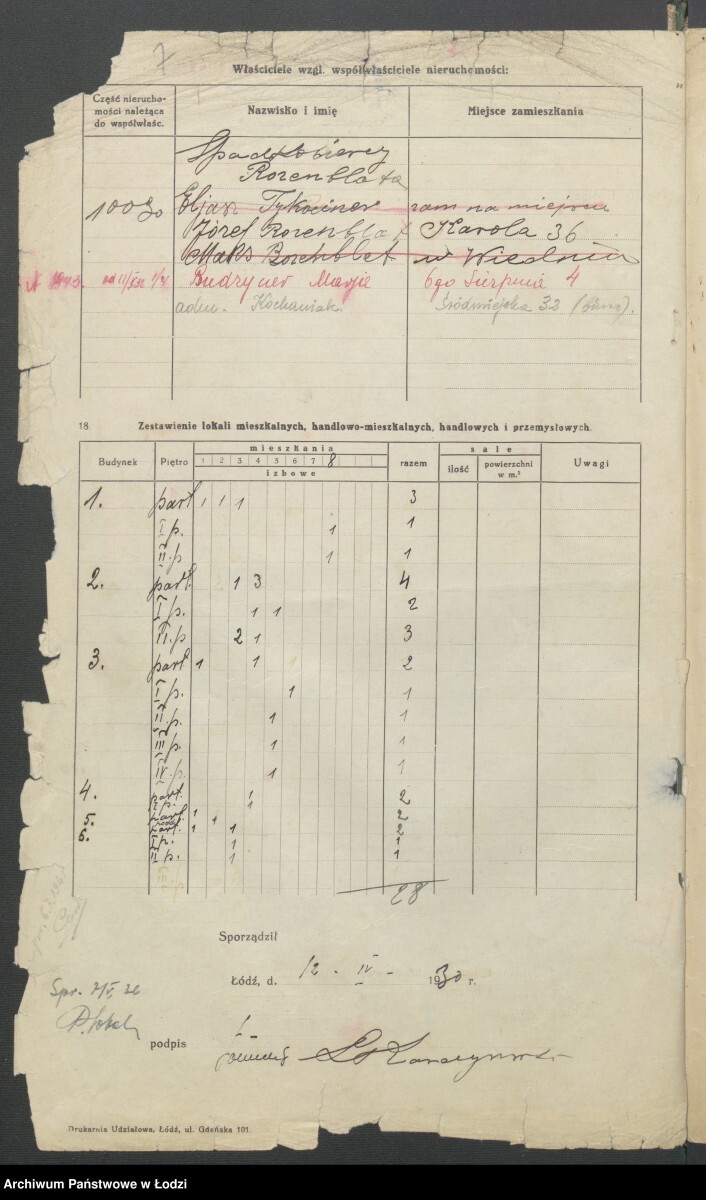 7
Właściciele wzgl. współwłaściciele nieruchomości:
Część nierucho-
mości należąca
do współwłaśc.
Nazwisko i imię
Miejsce zamieszkania
Spadkobiercy
Rozenblata
100% Eljasz Tykociner tam na miejscu
Józef Rozenblat Karola 36
Maks Rozenblat w Wiedniu
Budzyner Marje 6go Sierpnia 4
adm. Kochaniak. Śródmiejska 32
18. Zestawienie lokali mieszkalnych, handlowo-mieszkalnych, handlowych i przemysłowych.
Budynek Piętro mieszkania razem sale Uwagi
1 2 3 4 5 6 7 8
izbowe
ilość powierzchni
w m.²
1. part. 1 1 1 3
I p. 1 1
II p. 1 1
2. part. 1 3 4
I p. 1 1 2
II p. 2 1 3
3. part 1 1 2
I p. 1 1
II p. 1 1
III p. 1 1
IV p. 1 1
4. part. 1 2
I p. 1
5. part. 1 2
1
6. part. 1 1 2
I p. 1 1
II p. 1 1
28
Sporządził
Łódź, d. 12 - IV - 1930 r.
podpis
Drukarnia Udziałowa, Łódź, ul. Gdańska 101.
Archiwum Państwowe w Łodzi